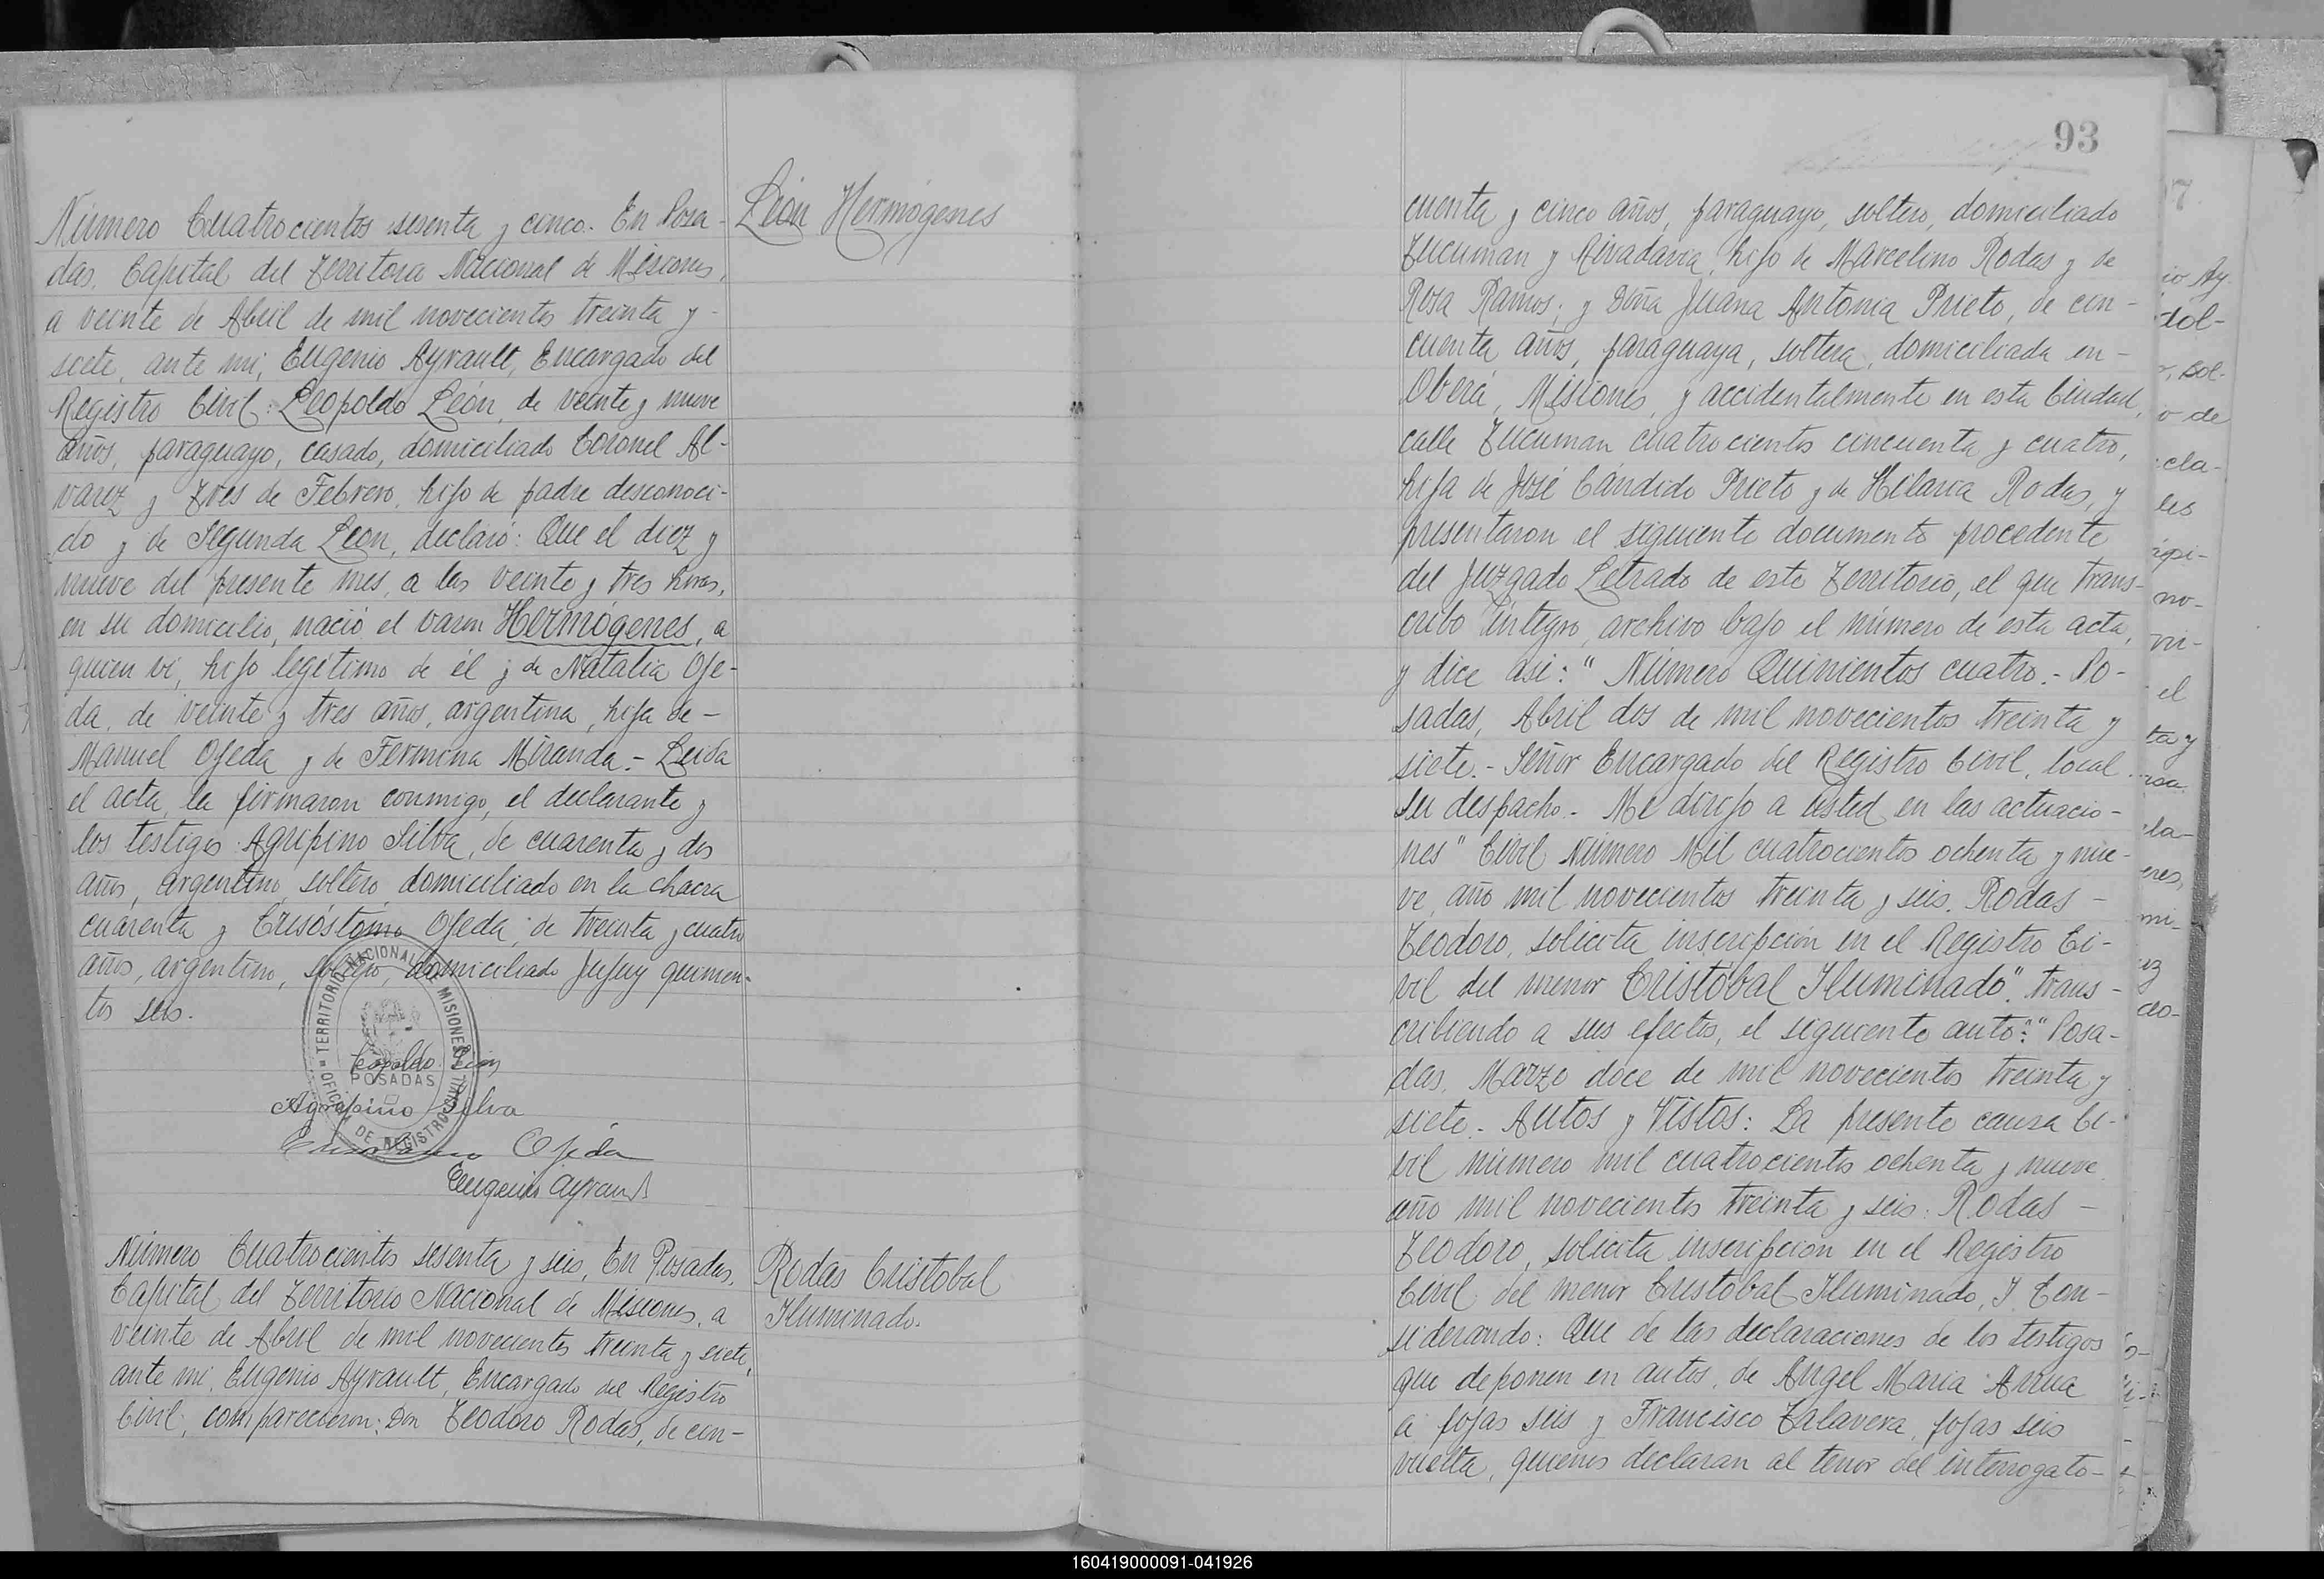 Número Cuatrocientos sesenta y cinco. En Posa-
das, Capital del Territorio Nacional de Misiones,
a veinte de Abril de mil novecientos treinta y
siete, ante mi, Eugenio Ayrault, Encargado del
Registro Civil: Leopoldo León, de veinte y nueve
años, paraguayo, casado, domiciliado Coronel Al-
varez y Tres de Febrero, hijo de padre desconoci-
do y de Segunda Leon, declaró: Que el diez y
nueve del presente mes, a las veinte y tres horas,
en su domicilio, nació el varon Hermógenes, a
quien vi, hijo legítimo de él y de Natalia Oje-
da, de veinte y tres años, argentina, hija de -
Manuel Ojeda y de Fermina Miranda.- Leida
el acta, la firmaron conmigo, el declarante y
los testigos Agripino Silva, de cuarenta y dos
años, argentino, soltero domiciliado en la chacra
cuarenta y Crisóstomo Ojeda, de treinta y cuatro
años, argentino, soltero, domiciliado Jujuy quinien-
tos seis.
Leopoldo León
Agripino Silva
Ojeda
Eugenio Ayrault
TERRITORIO NACIONAL DE MISIONES
POSADAS
OFICINA DE REGISTRO CIVIL
León Hermógenes
Número Cuatrocientos sesenta y seis, En Posadas,
Capital del Territorio Nacional de Misiones, a
veinte de Abril de mil novecientos treinta y siete,
ante mi, Eugenio Ayrault, Encargado del Registro
Civil, comparecieron: Don Teodoro Rodas, de cin-
Rodas Cristobal
Iluminado.
93
cuenta y cinco años, paraguayo, soltero, domiciliado
Tucuman y Rivadavia, hijo de Marcelino Rodas y de
Rosa Ramos; y Doña Juana Antonia Prieto, de cin-
cuenta años, paraguaya, soltera, domiciliada en -
Oberá, Misiones, y accidentalmente en esta Ciudad,
calle Tucuman cuatrocientos cincuenta y cuatro,
hija de José Cándido Prieto y de Hilaria Rodas, y
presentaron el siguiente documento procedente
del Juzgado Letrado de este Territorio, el que trans-
cribo íntegro, archivo bajo el número de esta acta,
y dice asi: " Número Quinientos cuatro.- Po-
sadas, Abril dos de mil novecientos treinta y
siete.- Señor Encargado del Registro Civil, local
su despacho.- Me dirijo a usted en las actuacio-
nes " Civil Número Mil cuatrocientos ochenta y nue-
ve, año mil novecientos treinta y seis. Rodas -
Teodoro, solicita inscripción en el Registro Ci-
vil del menor Cristóbal Iluminado". trans-
cribiendo a sus efectos, el siguiente auto:" Posa-
das, Marzo doce de mil novecientos treinta y
siete.- Autos y Vistos: La presente causa Ci-
vil número mil cuatrocientos ochenta y nueve
año mil novecientos treinta y seis: Rodas -
Teodoro, solicita inscripcion en el Registro
Civil del menor Cristobal Iluminado, Y Con-
siderando: Que de las declaraciones de los testigos
que deponen en autos, de Angel Maria
a fojas seis y Francisco Talavera, fojas seis
vuelta, quienes declaran al tenor del interrogato-
160419000091-041926